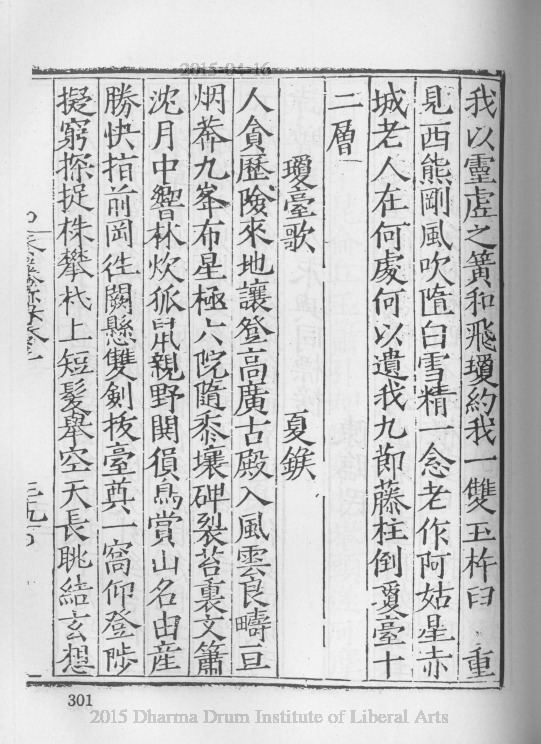 2015-04-16
我以靈虛之簧和飛瓊約我一雙玉杵臼 重
見西熊剛風吹隨白雪精一念老作阿姑星赤
城老人在何處何以遺我九節藤柱倒瓊臺十
二層
瓊臺歌 夏鍭
人貪歷險來地讓登高廣古殿入風雲良疇亘
烟莽九峯布星極六院隨黍壤碑裂苔裏文簫
沈月中響林炊狐鼠親野闃猿鳥賞山名由産
勝快指前岡徃闕懸雙劍拔臺奠一窩仰登陟
擬窮探捉株攀杙上短髮舉空天長眺結玄想
301
2015 Dharma Drum Institute of Liberal Arts